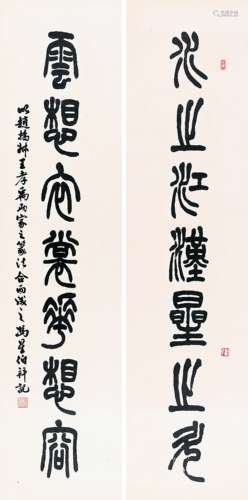 水之江漢星之斗
雲想衣裳華想容
以趙撝叔王孝禹兩家之篆法合而成之馮星伯并記